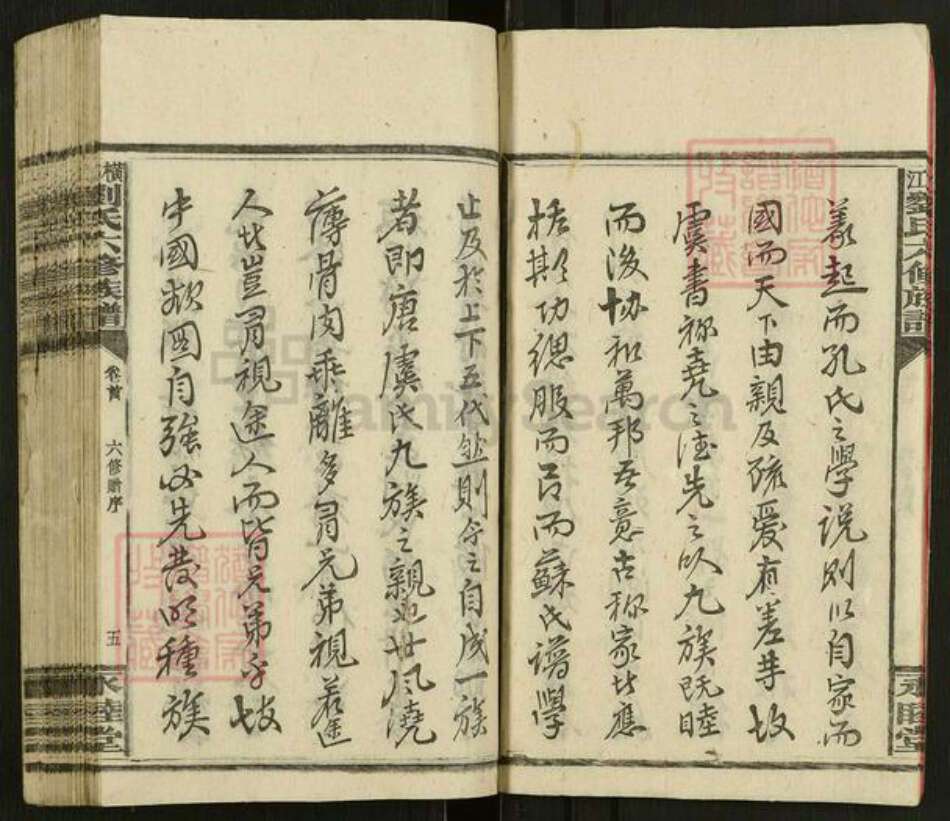 江劉氏六修族譜
永睦堂
義起而孔氏之學説則以自家而
國而天下由親及疏愛有差等故
虞書称堯之德先之以九族既睦
而後協和萬邦吾意古称家此應
括斯功緦服而吕而蘇氏譜學
止及於上下五代然則今之自成一族
者即唐虞氏九族之親也世风澆
薄骨肉乖離多有兄弟視若途
人此豈有視途人而皆兄弟乎故
中國欲圖自強必先發明種族
橫劉氏六修族譜
卷首
六修贈序
五
永睦堂
FamilySearch